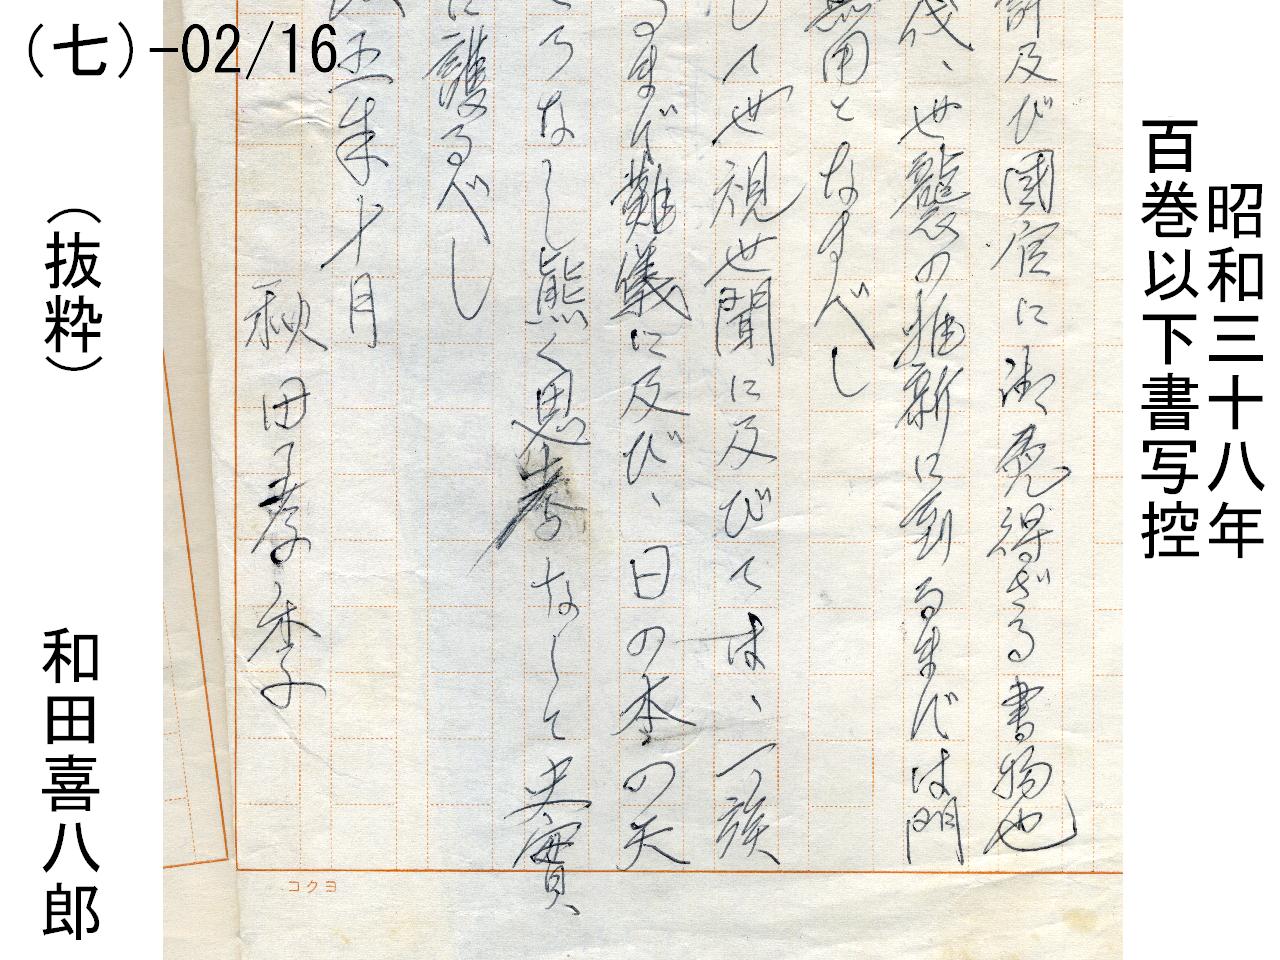 昭和三十八年
百巻以下書写控
及び國官に御免得ざる書物也
代、世襲の維新に到るまでは門
無用となすべし
して世視世聞に及びては、一族
るまで難儀に及び、日の本の天
ろなし能く思考なして史實
に護るべし
五年十月
秋田孝季
コクヨ
(七)-02/16
(抜粋)
和田喜八郎